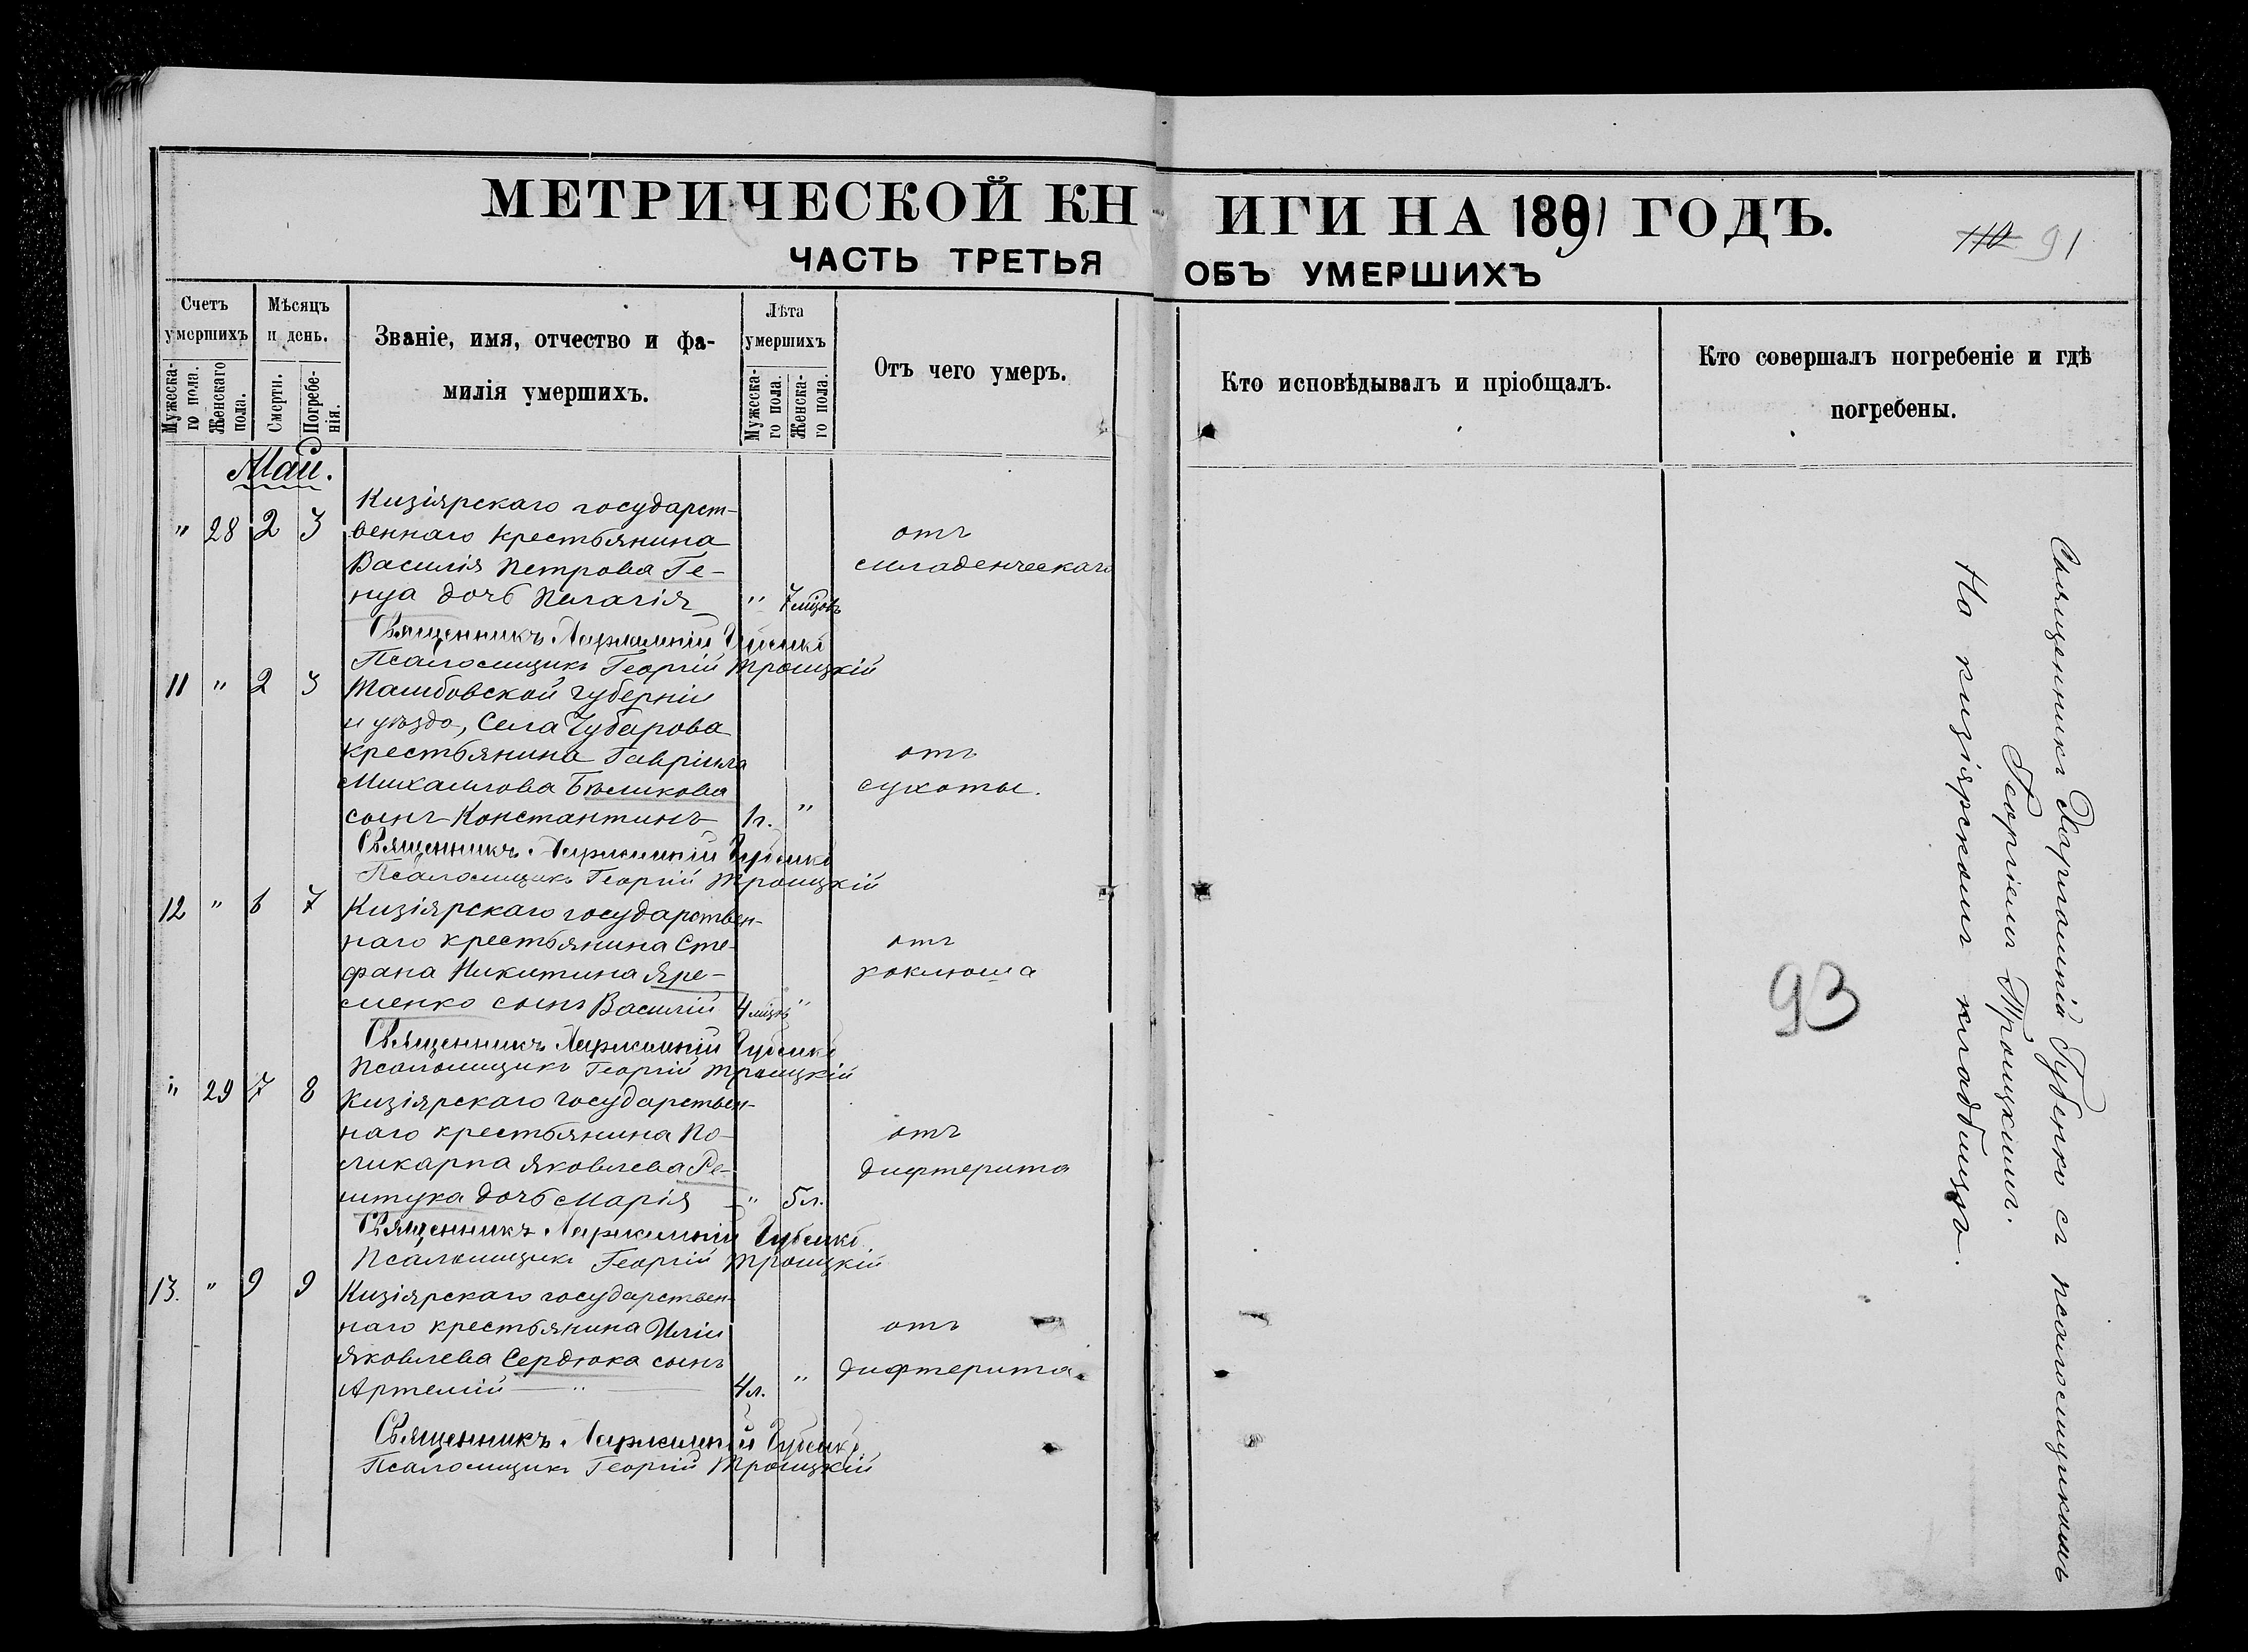 МЕТРИЧЕСКОЙ КНИГИ НА 1891 ГОДЪ.
110 91
ЧАСТЬ ТРЕТЬЯ ОБЪ УМЕРШИХЪ
Счетъ умершихъ
Мужеска-го пола.
Женскаго пола.
Мѣсяцъ и день.
Смерти.
Погребе-нія.
Званіе, имя, отчество и фа-
милія умершихъ.
Лѣта умершихъ
Мужеска-го пола.
Женска-го пола.
Отъ чего умеръ.
Кто исповѣдывалъ и пріобщалъ.
Кто совершалъ погребеніе и гдѣ
погребены.
Май.
Кизіярскаго государст-
" 28 2 3 веннаго крестьянина отъ
Василія Петрова Ге- младенческаго
нца дочь Пелагія " 7 мцовъ
Священникъ Харлампій Губенко
Псаломщикъ Георгій Троицкій
11 " 2 3 Тамбовской губерніи
и уѣзда, Села Чубарова
крестьянина Гавріила отъ
Михаилова Бѣликова сухоты.
сынъ Константинъ 1г. "
Священникъ Харлампій Губенко
Псаломщикъ Георгій Троицкій
12 " 6 7 Кизіярскаго государствен-
наго крестьянина Сте- отъ
фана Никитина Яре- коклюша
менко сынъ Василій 4 мцвъ "
Священникъ Харлампій Губенко
Псаломщикъ Георгій Троицкій
" 29 7 8 Кизіярскаго государствен-
наго крестьянина По- отъ
ликарпа Яковлева Ре- дифтерита
штука дочь Марія " 5л.
Священникъ Харлампій Губенко
Псаломщикъ Георгій Троицкій
13. " 9 9 Кизіярскаго государствен-
наго крестьянина Иліи отъ
Яковлева Сердюка сынъ дифтерита.
Артемій " 4л. "
Священникъ Харлампій Губенко
Псаломщикъ Георгій Троицкій
Священникъ Харлампій Губенко съ псаломщикомъ
Георгіемъ Троицкимъ.
На кизіярскомъ кладбищѣ.
93